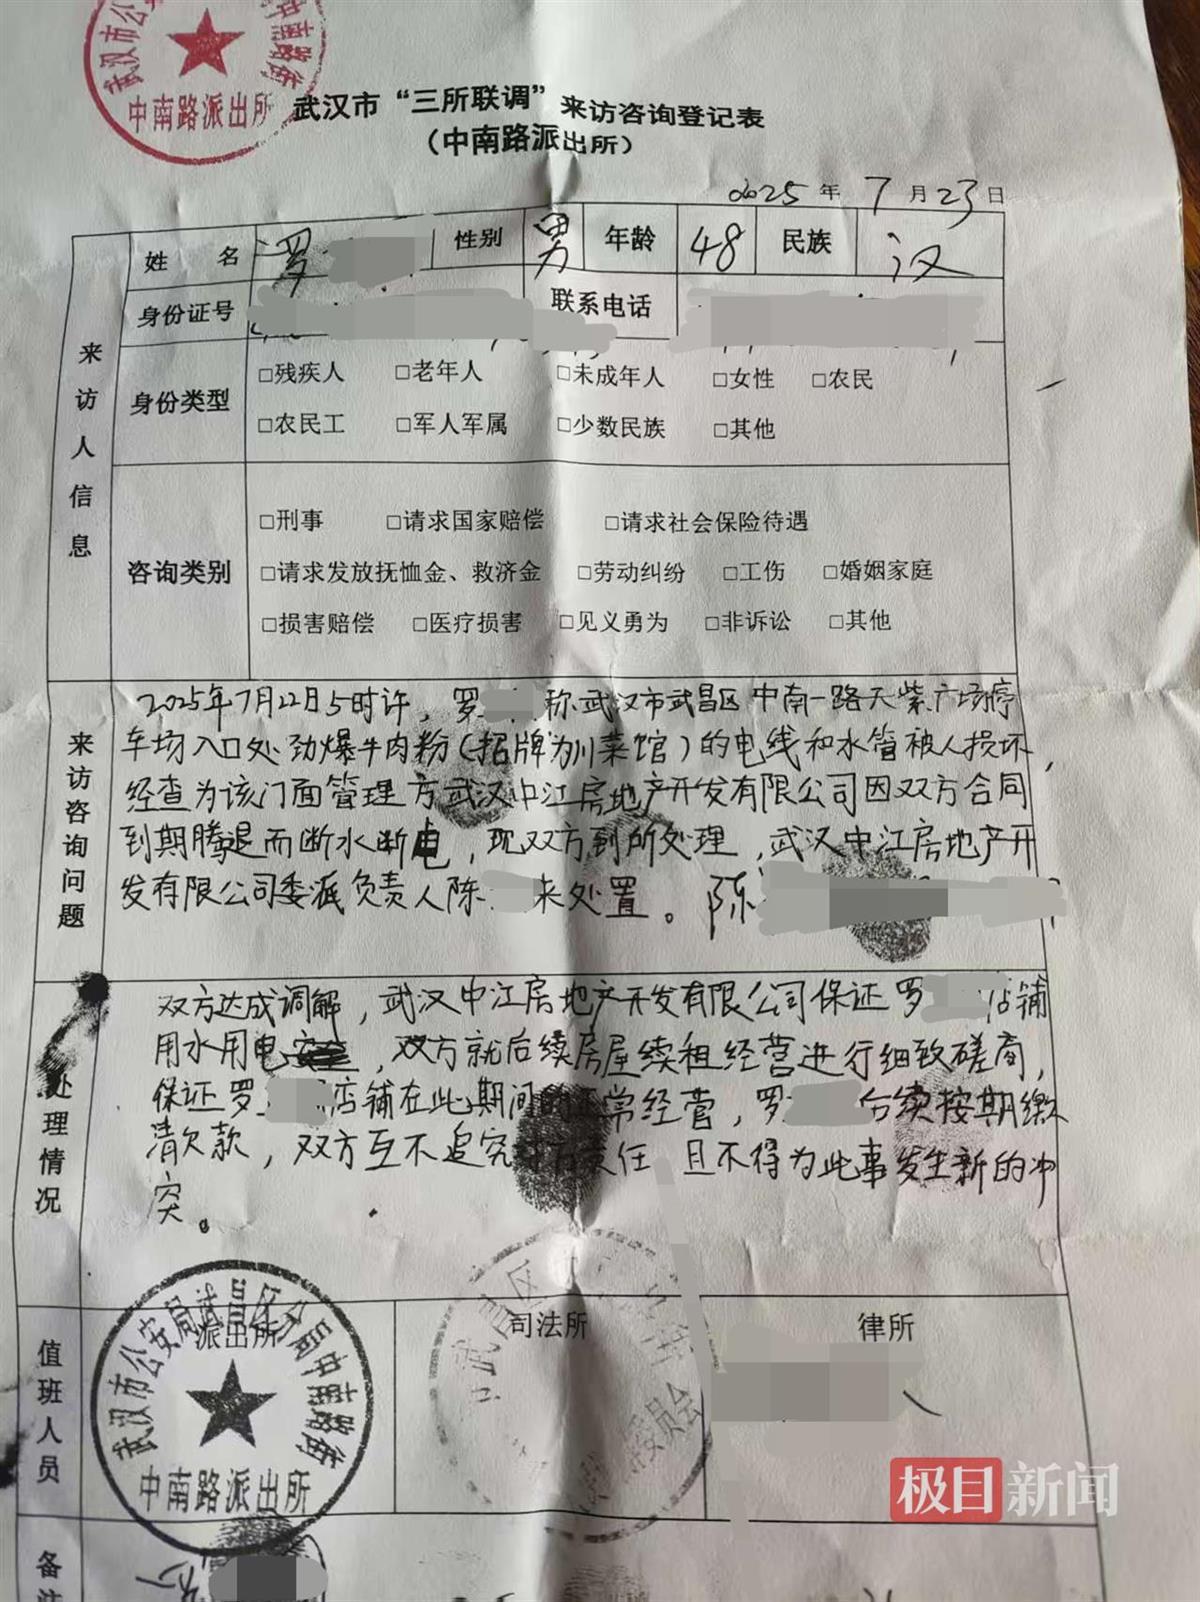 武汉市公安
中南路街
中南路派出所
武汉市“三所联调”来访咨询登记表
（中南路派出所）
2025年7月23日
来访人信息
姓 名 罗 性别 男 年龄 48 民族 汉
身份证号 联系电话
身份类型
□残疾人 □老年人 □未成年人 □女性 □农民
□农民工 □军人军属 □少数民族 □其他
咨询类别
□刑事 □请求国家赔偿 □请求社会保险待遇
□请求发放抚恤金、救济金 □劳动纠纷 □工伤 □婚姻家庭
□损害赔偿 □医疗损害 □见义勇为 □非诉讼 □其他
来访咨询问题
2025年7月22日5时许，罗 称武汉市武昌区中南一路天紫广场停
车场入口处劲爆牛肉粉（招牌为川菜馆）的电线和水管被人损坏，
经查为该门面管理方武汉中江房地产开发有限公司因双方合同
到期腾退而断水断电，现双方到所处理，武汉中江房地产开
发有限公司委派负责人陈 来处置。 陈
处理情况
双方达成调解，武汉中江房地产开发有限公司保证罗 店铺
用水用电 ，双方就后续房屋续租经营进行细致磋商，
保证罗 店铺在此期间的正常经营，罗 续按期缴
清欠款，双方互不追究对方责任 且不得为此事发生新的冲
突。
值班人员
派出所
司法所
律所
武汉市公安局武昌区分局中南路街
中南路派出所
武昌区
委员会
极目新闻
备注